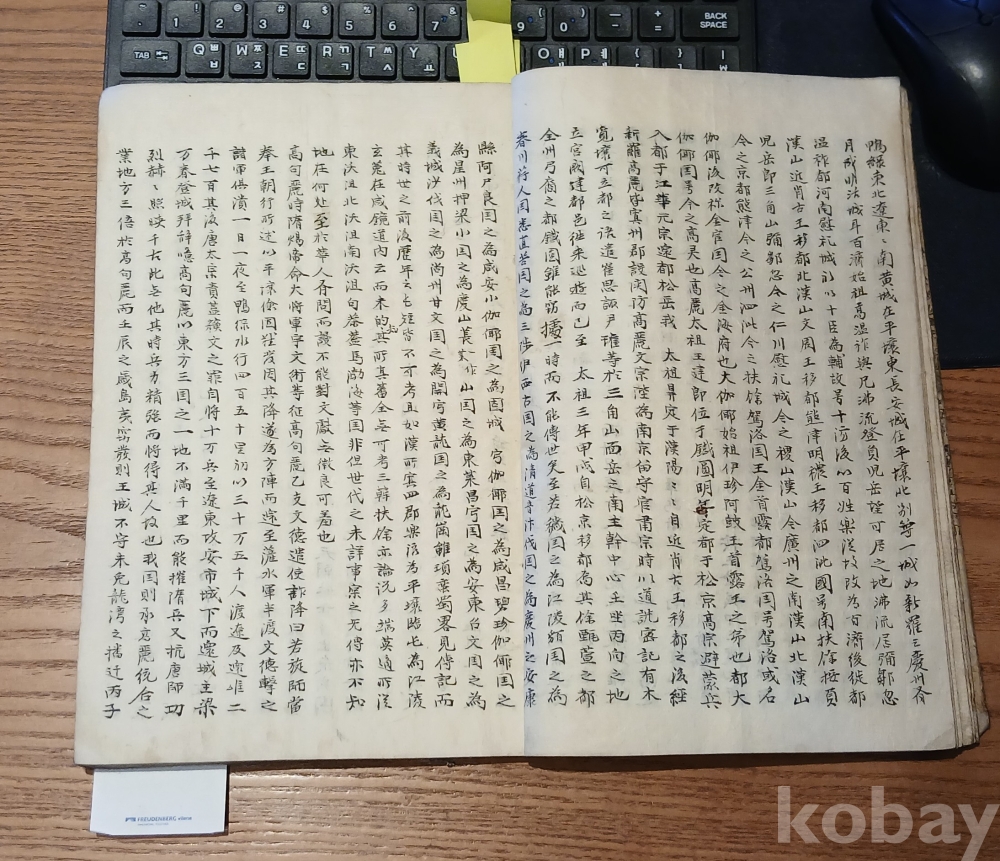 鴨綠東北遼東之南黃城在平壤東長安城在平壤北別等一城如新羅之慶州各
月成明活城耳百濟始祖高溫祚與兄沸流登負兒岳望可居之地沸流居彌鄒忽
溫祚都河南慰礼城初以十臣為輔故号十濟後以百姓樂從故改為百濟後徙都
漢山近肖古王移都北漢山文周王移都熊津明穠王移都泗沘國号南扶馀按負
兒岳即三角山彌鄒忽今之仁川慰礼城今之稷山漢山今廣州之南漢山北漢山
今之京都熊津今之公州泗沘今之扶馀駕洛国王金首露都駕洛国号駕洛或名
伽倻後改称金官国今之金海府也大伽倻始祖伊珍阿豉王首露王之弟也都大
伽倻国号今之高灵也高麗太祖王建即位于鐵圓明年定都于松京高宗避蒙兵
入都于江華元宗還都松岳我 太祖昇定于漢陽之自近肖古王移都之後經
新羅高麗皆寘州郡設関防高麗文宗陞為南京留守官肅宗時以道詵密記有木
覓壤可立都之訣遣崔思諏尹瓘等於三角山面岳之南主幹中心壬坐丙向之地
立宮闕建都邑徃来巡遊而已至 太祖三年甲戌自松京移都焉其馀甄萱之都
全州弓裔之都鐵圓雖能窃據一時而不能傳世矣至若濊国之為江陵貊国之為
春川苻人国悉直谷国之為三陟伊西古国之為清道音汁伐国之為慶州之安康
縣阿尸良国之為咸安小伽倻国之為固城 宁伽倻国之為咸昌碧珍伽倻国之
為星州押梁小国之為慶山萇 山国之為東萊昌宁国之為安東召文国之為
義城沙伐国之為尙州甘文国之為開宁黃龍国之為龍崗 見傳記而
其時世之前後歷年之長短皆不可考且如漢所寘四郡樂浪為平壤臨屯為江陵
玄菟在咸鏡道內云而未的其所真番全無可考三韓扶馀亦論说多端莫適所從
東沃沮北沃沮南沃沮句荼蓋馬勃海等国非但世代之未詳事案之无傳亦不知
地在何处至於華人有問而設不能對文獻無徵良可羞也
高句麗時隋煬帝命大將軍宇文術等征高句麗乙支文德遣使詐降曰若旋師當
奉王朝行所述以平壤 固 發因其降遂為方陣而還至薩水軍半渡文德擊之
諸軍俱潰一日一夜至鴨綠水行四百五十里初以三十万五千人渡遼及還惟二
千七百其後唐太宗責蓋蘇文之罪自將十万兵至遼東攻安市城下而還城主梁
万春登城拜辞噫高句麗以東方三国之一地不滿千里而能摧隋兵又抗唐師功
烈赫之照暎千古此無他其時兵力精強而將得其人故也我国則承高麗統合之
業地方三倍於高句麗而壬辰之歲島夷竊發則王城不守未免龍湾之播迁丙子
FREUDENBERG
BACK SPACE
TAB
Q W E R T Y O P
kobay